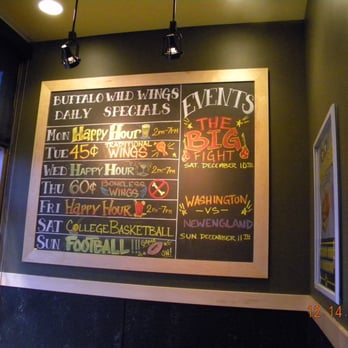 BUFFALO WILD WINGS
DAILY SPECIALS
MON HAPPY HOUR 2PM-7PM
TUE 45¢ TRADITIONAL WINGS
WED HAPPY HOUR 2PM-7PM
THU 60¢ BONELESS WINGS
FRI HAPPY HOUR 2PM-7PM
SAT COLLEGE BASKETBALL
SUN FOOTBALL!!!
EVENTS
THE
BIG
FIGHT
SAT. DECEMBER 10TH
WASHINGTON
-VS-
NEW ENGLAND
SUN. DECEMBER 11TH
12 14